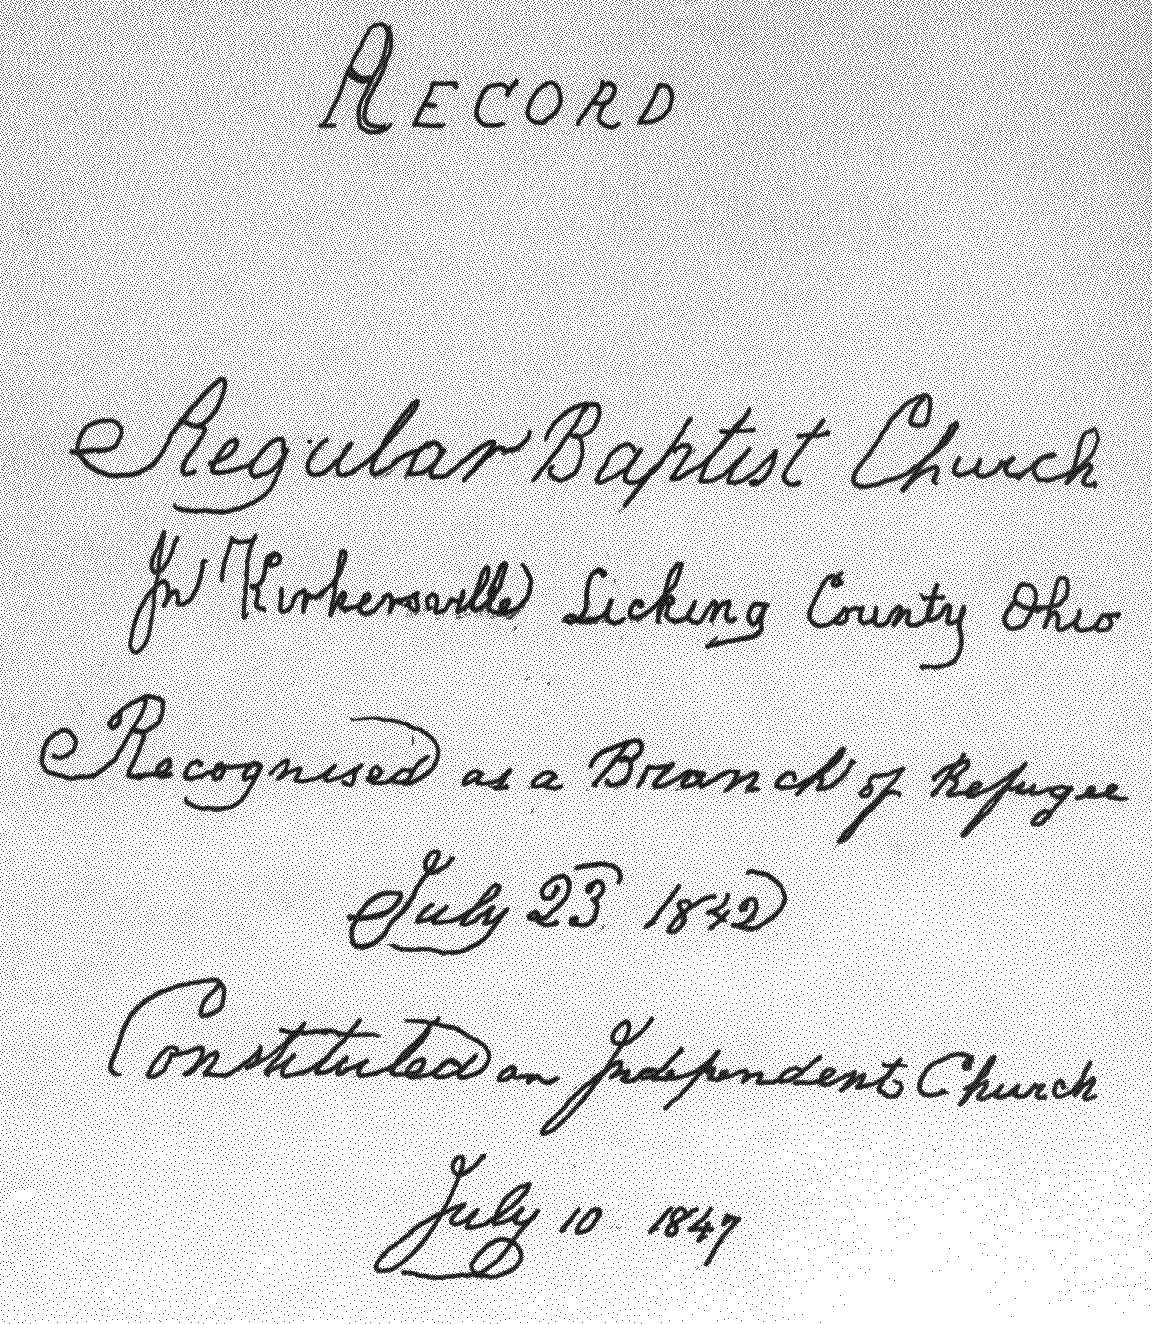 RECORD
Regular Baptist Church
In Kirkersville Licking County Ohio
Recognised as a Branch of Refugee
July 23 1842
Constituted an Independent Church
July 10 1847